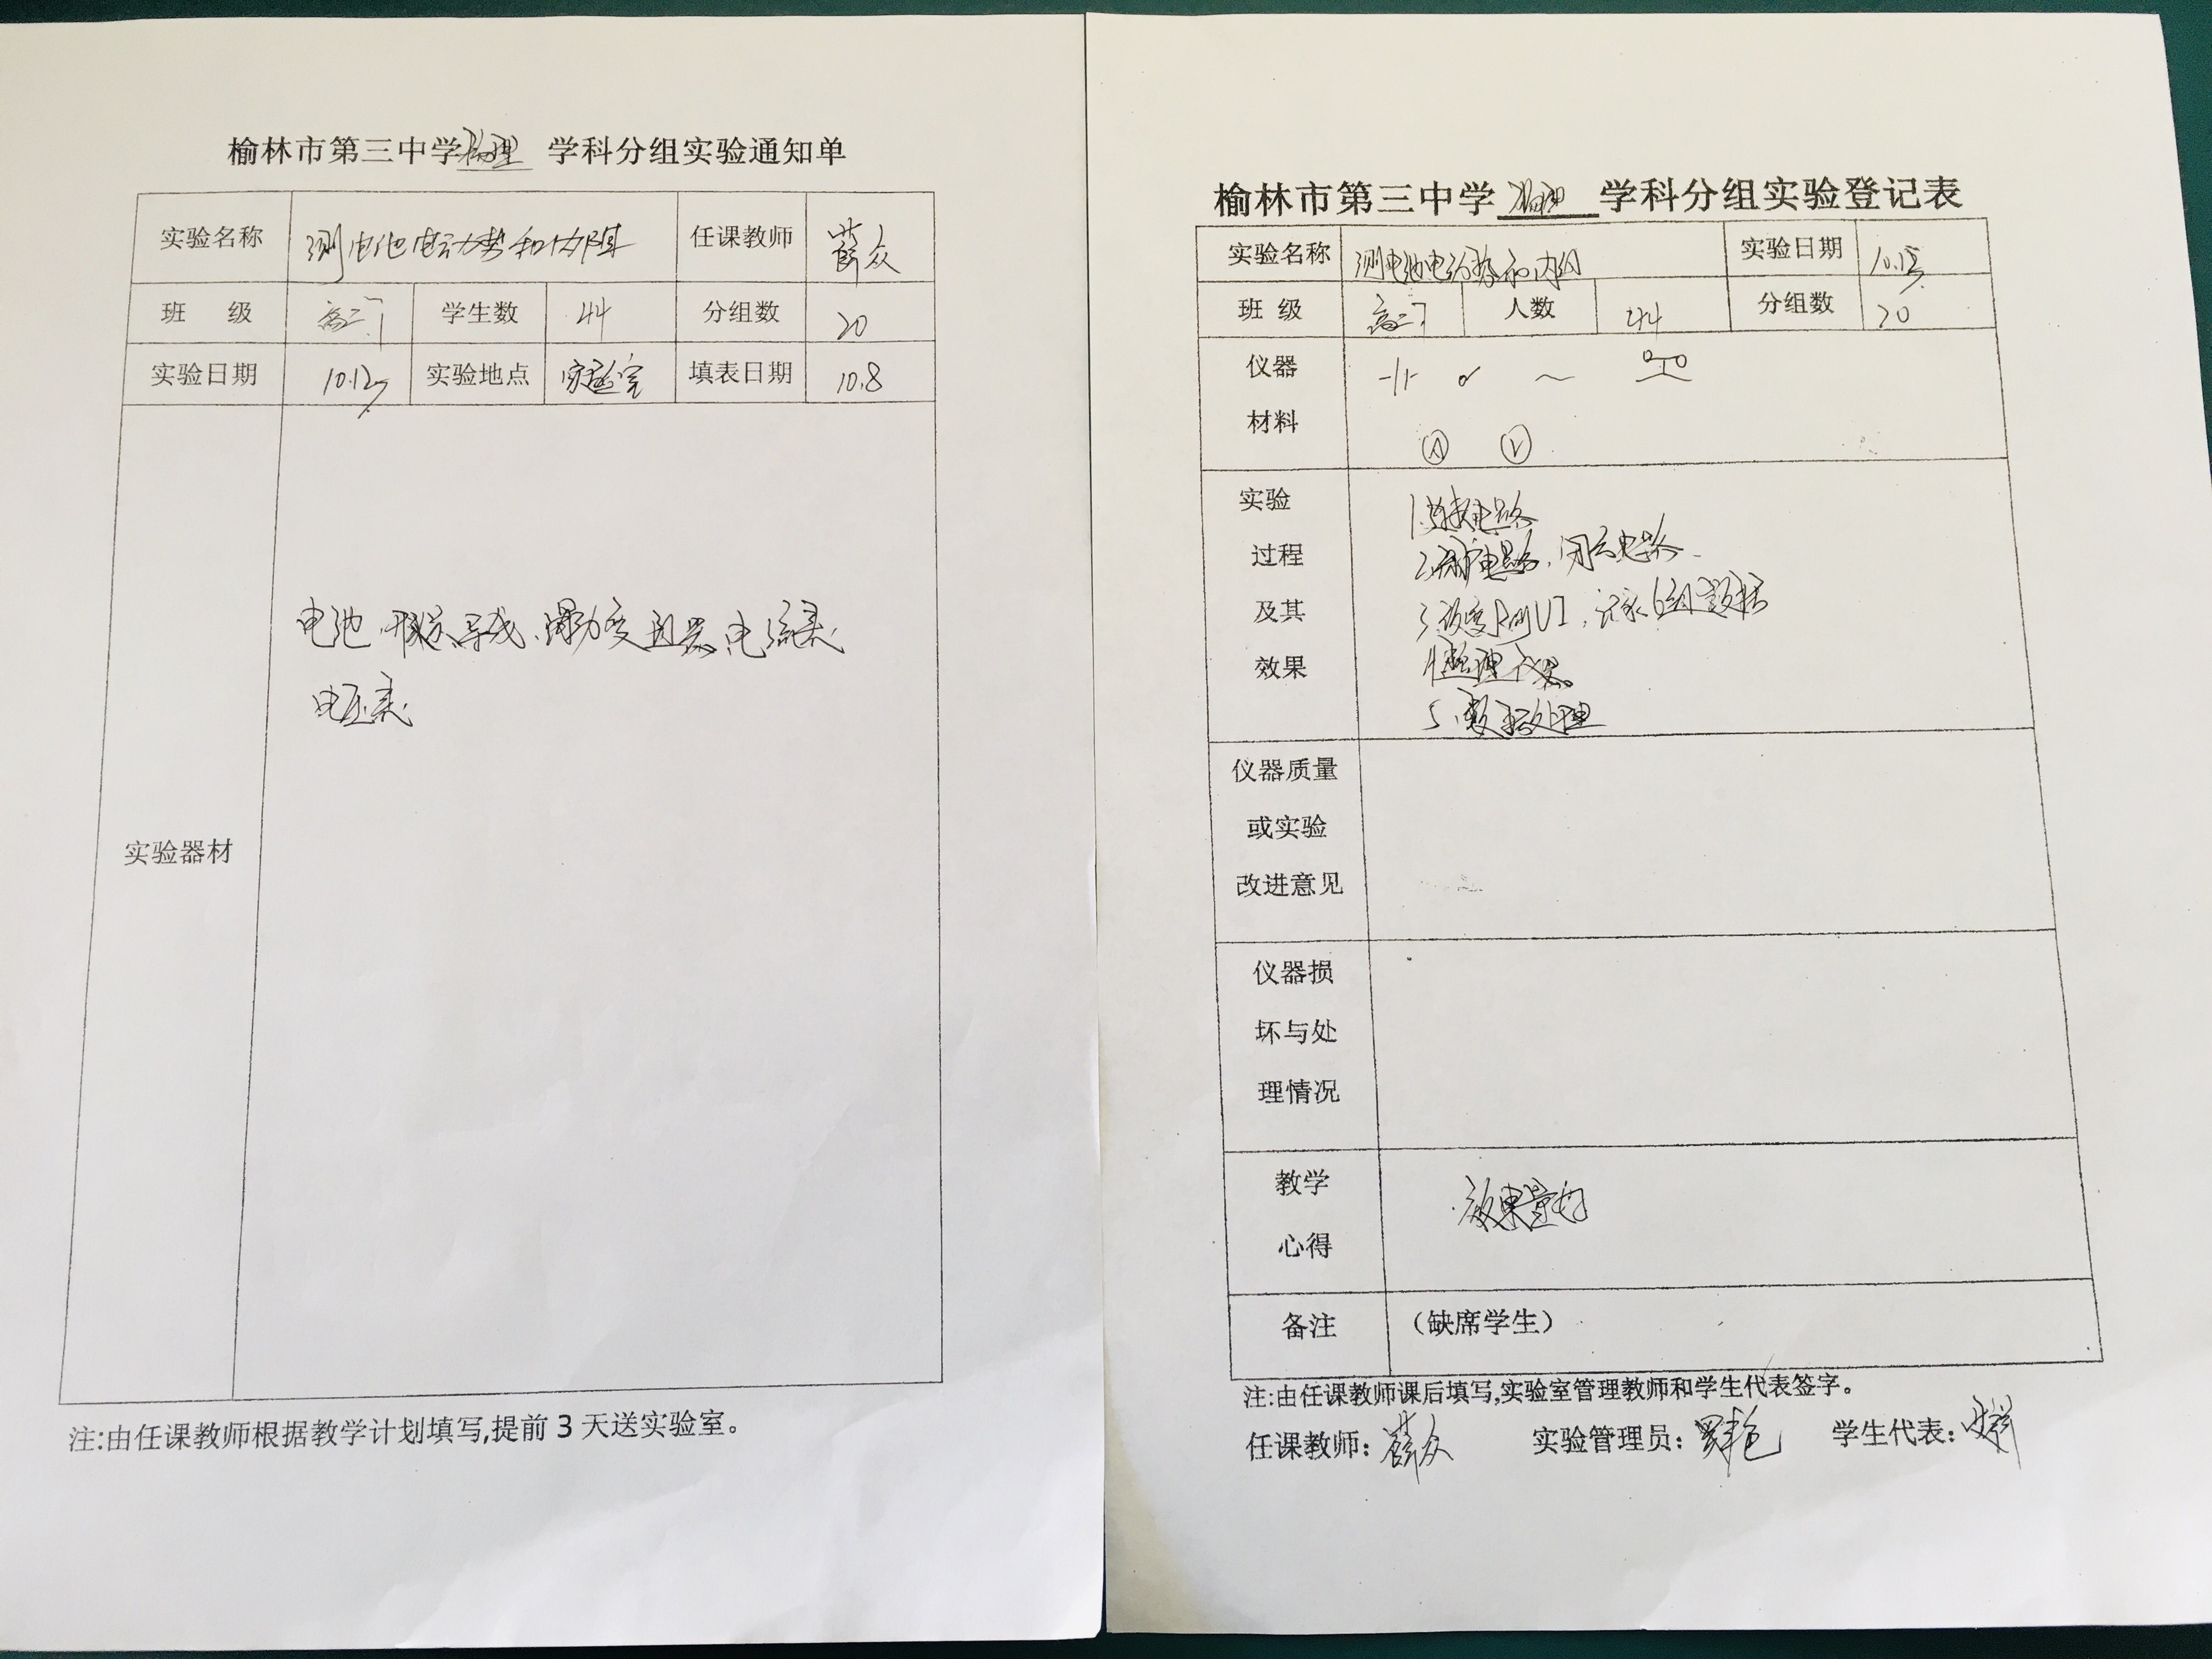 榆林市第三中学物理 学科分组实验通知单
实验名称 测电池电动势和内阻 任课教师 薛众
班 级 高二.7 学生数 44 分组数 20
实验日期 实验地点 实验室 填表日期 10.8
实验器材
电池、开关、导线、滑动变阻器、电流表
电压表
注:由任课教师根据教学计划填写,提前 3 天送实验室。
榆林市第三中学 物理 学科分组实验登记表
实验名称 测电池电动势和内阻 实验日期
班 级 高二.7 人数 44 分组数 20
仪器
材料
A V
实验
过程
及其
效果
1.连接电路
2. 电路,闭合电路
3.改变R测UI,记录6组数据
4.整理仪器
5.数据处理
仪器质量
或实验
改进意见
仪器损
坏与处
理情况
教学
心得
效果量好
备注 (缺席学生)
注:由任课教师课后填写,实验室管理教师和学生代表签字。
任课教师: 薛众 实验管理员: 学生代表: